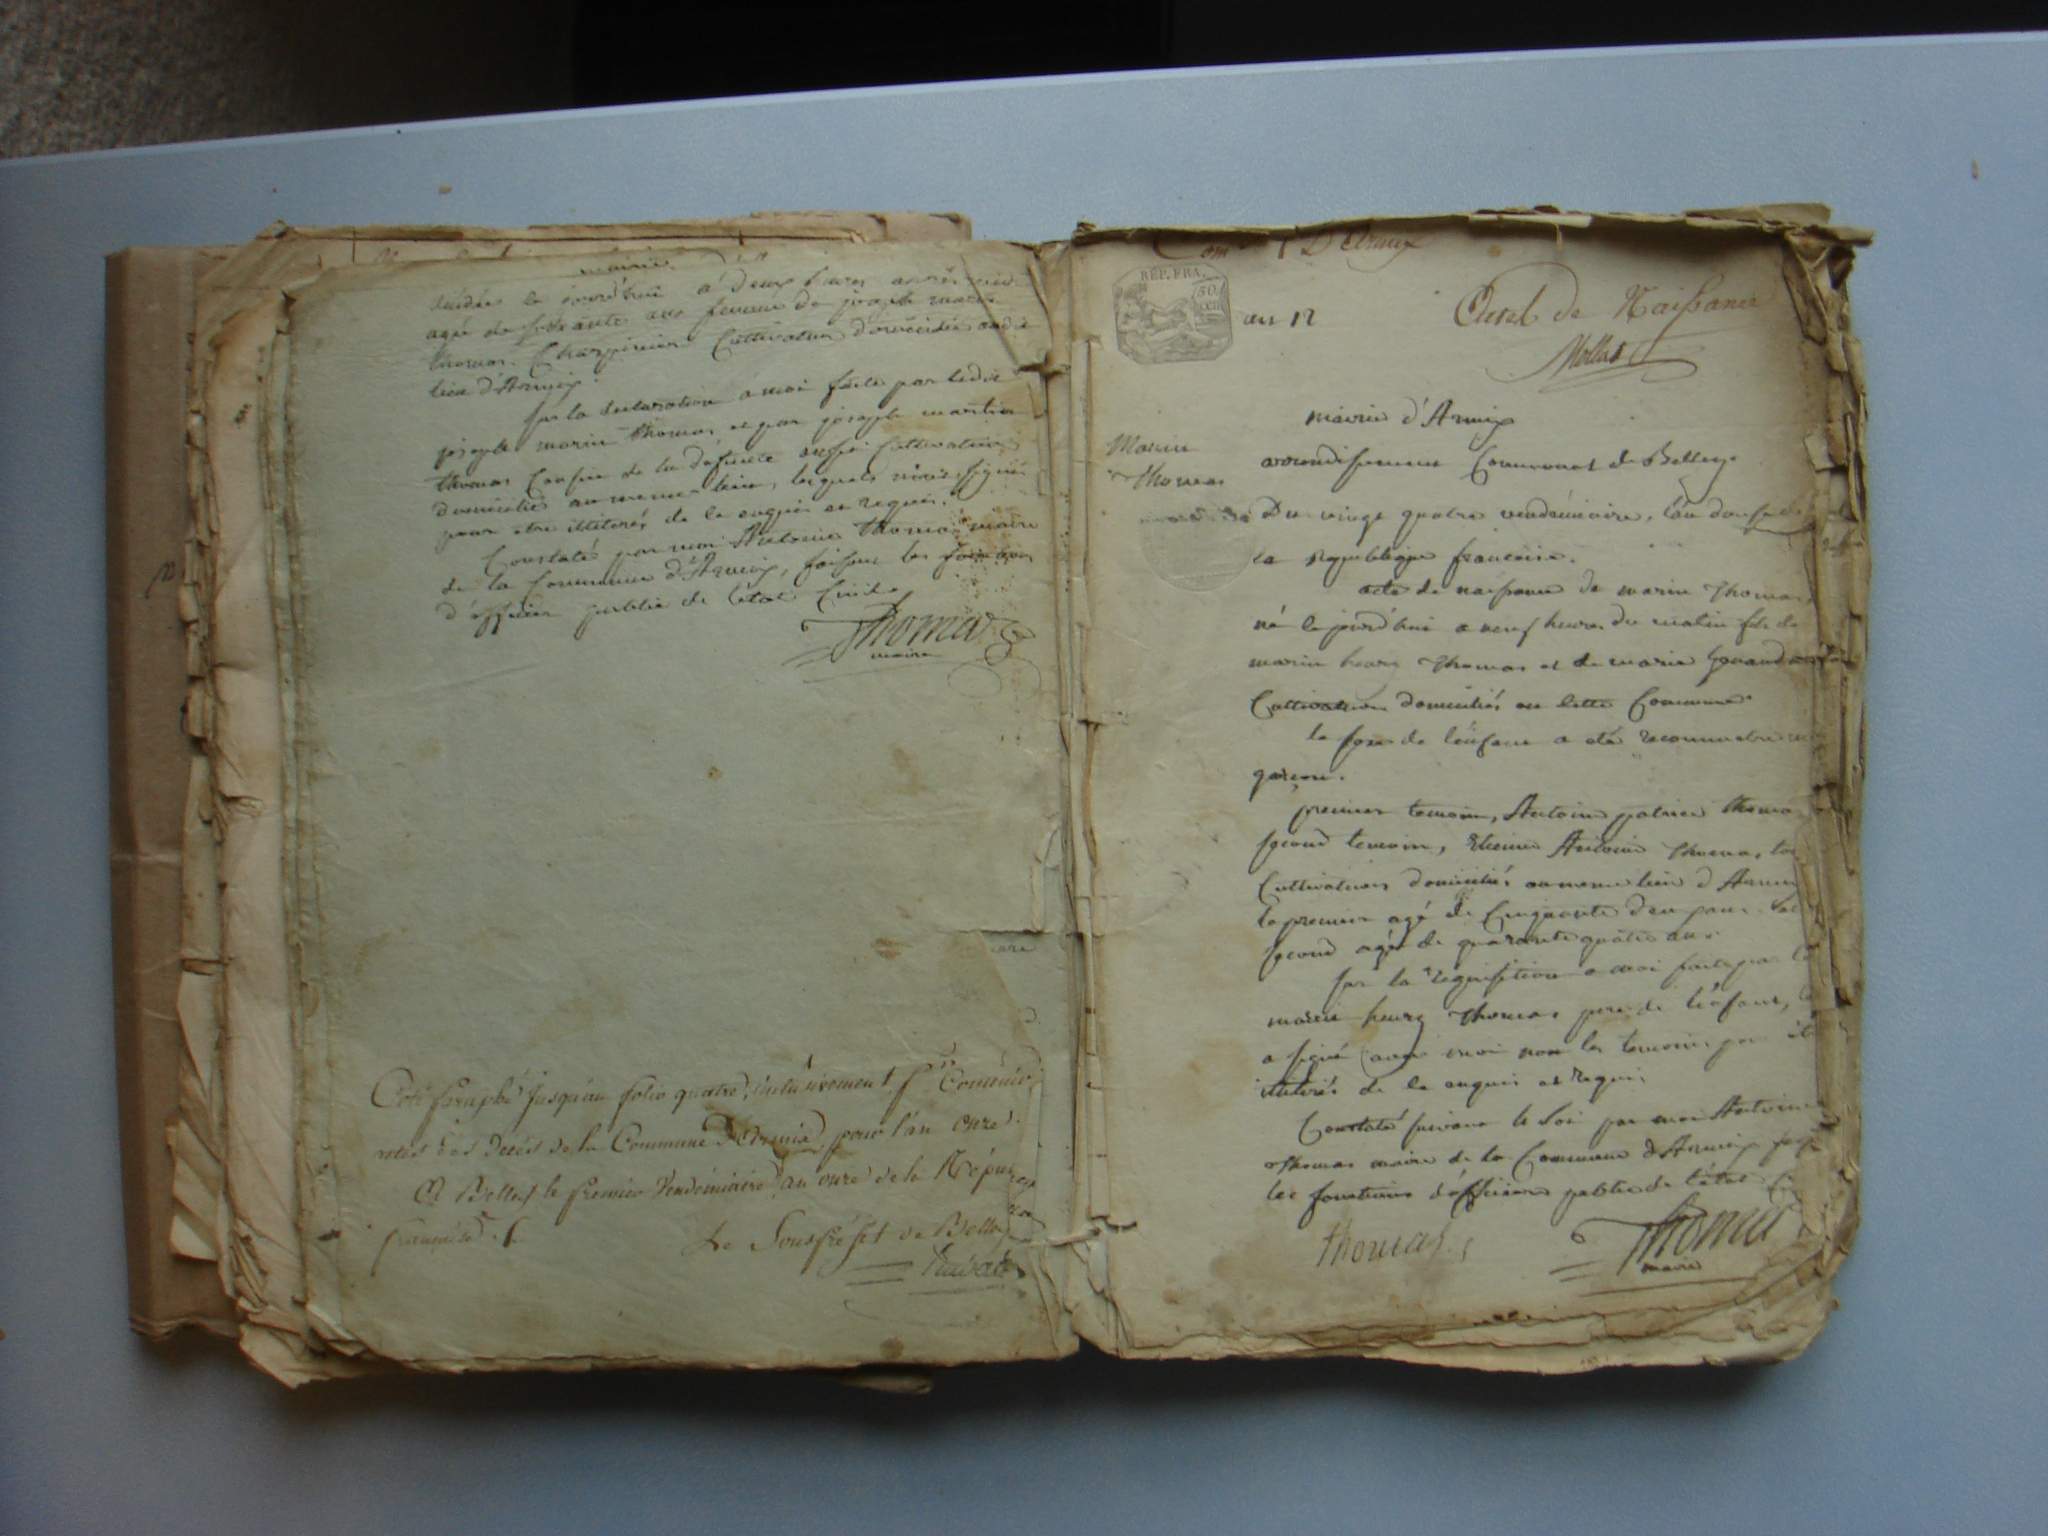 mairie
décédée le jourd'hui a deux heures après midi
agée de soixante ans femme de joseph marin
thomas Charpinier Cultivateur domiciliée audit
lieu d'Armix.
sur la declaration a moi faite par ledit
joseph marin thomas et par joseph martin
thomas Cousin de la defunte aussi Cultivateur
domiciliés au meme lieu, lesquels n'ont signé
pour etre illiterés de ce enquis et requis.
Constaté par moi Antoine Thomas maire
de la Commune d'Armix, faisant les fonctions
d'officier public de letat Civil.
Thomas
maire
Coté paraphé jusqu'au folio quatre, inclusivement pr
des Decés de la Commune D'Armix pour l'an onze.
A Belley le premier Vendemiaire an onze de la Répu
francaise.
Le Sousprefet de Belley
D'Armix
REP. FRA.
50
CEN
an 12
de Naissance
Mollet
mairie d'Armix
arrondissement Communal de Belley
Marin
Thomas
Du vingt quatre vendémiaire, l'an douze de
la republique francaise.
acte de naissance de marin Thomas,
né le jourd'hui a neuf heures du matin fils de
marin henry Thomas et de marie
Cultivateurs domiciliés en cette Commune
le sexe de l'enfant a été reconnu etre un
garçon.
premier temoin, Antoine patrice thomas
second temoin, Etienne Antoine Thomas, tous
Cultivateurs domiciliés au meme lieu d'Armix
le premier agé de Cinquante deux ans
second agé de quarante quatre ans.
sur la requisition a moi faite par le
marin henry Thomas pere de l'enfant,
a signé avec moi non les temoins pour
illiterés de ce enquis et requis.
Constaté suivant la Loi par moi Antoine
Thomas maire de la Commune d'Armix
les fonctions d'officier public de l'état
thomas
Thomas
maire